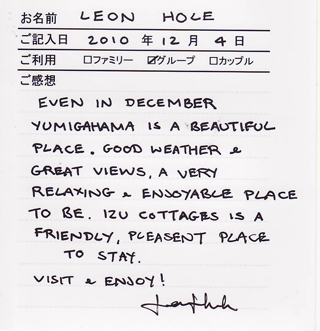 お名前 LEON HOLE
ご記入日 2010 年 12 月 4 日
ご利用 □ファミリー ☑グループ □カップル
ご感想
EVEN IN DECEMBER
YUMIGAHAMA IS A BEAUTIFUL
PLACE. GOOD WEATHER &
GREAT VIEWS, A VERY
RELAXING & ENJOYABLE PLACE
TO BE. IZU COTTAGES IS A
FRIENDLY, PLEASENT PLACE
TO STAY.
VISIT & ENJOY!